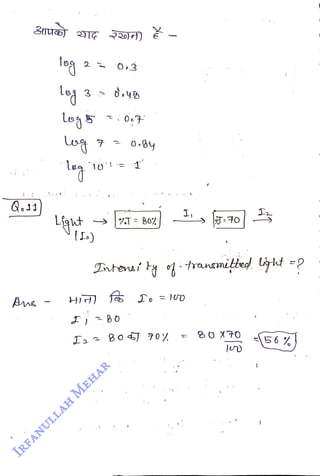 आपको याद रखना है -
log 2 = 0.3
log 3 = 0.48
Log 5 = 0.7
Log 7 = 0.84
log 10 = 1
Q.11
Light (I₀) → %T = 80% I₁ → 70 I₂ →
Intensity of transmitted light = ?
Ans - माना कि I₀ = 100
I₁ = 80
I₂ = 80 का 70% = 80 × 70 / 100 = 56%
IRFANULLAH MEHAR